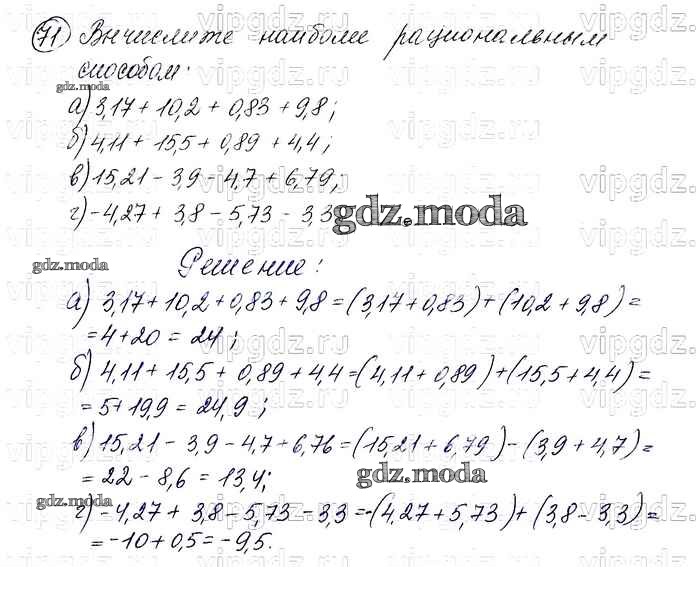 71) Вычислите наиболее рациональным
способом:
gdz.moda
а) 3,17 + 10,2 + 0,83 + 9,8;
б) 4,11 + 15,5 + 0,89 + 4,4;
в) 15,21 - 3,9 - 4,7 + 6,79;
г) -4,27 + 3,8 - 5,73 - 3,3
gdz.moda
Решение:
gdz.moda
а) 3,17 + 10,2 + 0,83 + 9,8 = (3,17 + 0,83) + (10,2 + 9,8) =
= 4 + 20 = 24;
б) 4,11 + 15,5 + 0,89 + 4,4 = (4,11 + 0,89) + (15,5 + 4,4) =
= 5 + 19,9 = 24,9;
в) 15,21 - 3,9 - 4,7 + 6,76 = (15,21 + 6,79) - (3,9 + 4,7) =
= 22 - 8,6 = 13,4;
gdz.moda
gdz.moda
г) -4,27 + 3,8 - 5,73 - 3,3 = -(4,27 + 5,73) + (3,8 - 3,3) =
= -10 + 0,5 = -9,5.
vipgdz.ru